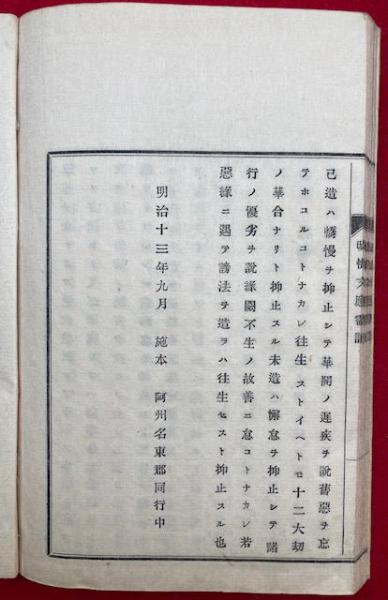 己造ハ憍慢ヲ抑止シテ華開ノ遲疾ヲ説舊惡ヲ忘
テホコルコトナカレ往生ストイヘトモ十二大劫
ノ華合ナリト抑止スル未造ハ懈怠ヲ抑止シテ諸
行ノ優劣ヲ説謀聞不生ノ故善ニ怠コトナカレ若
惡縁ニ遇テ謗法ヲ造ラハ往生セスト抑止スル也
明治十三年九月　施本　阿州名東郡同行中
改悔文